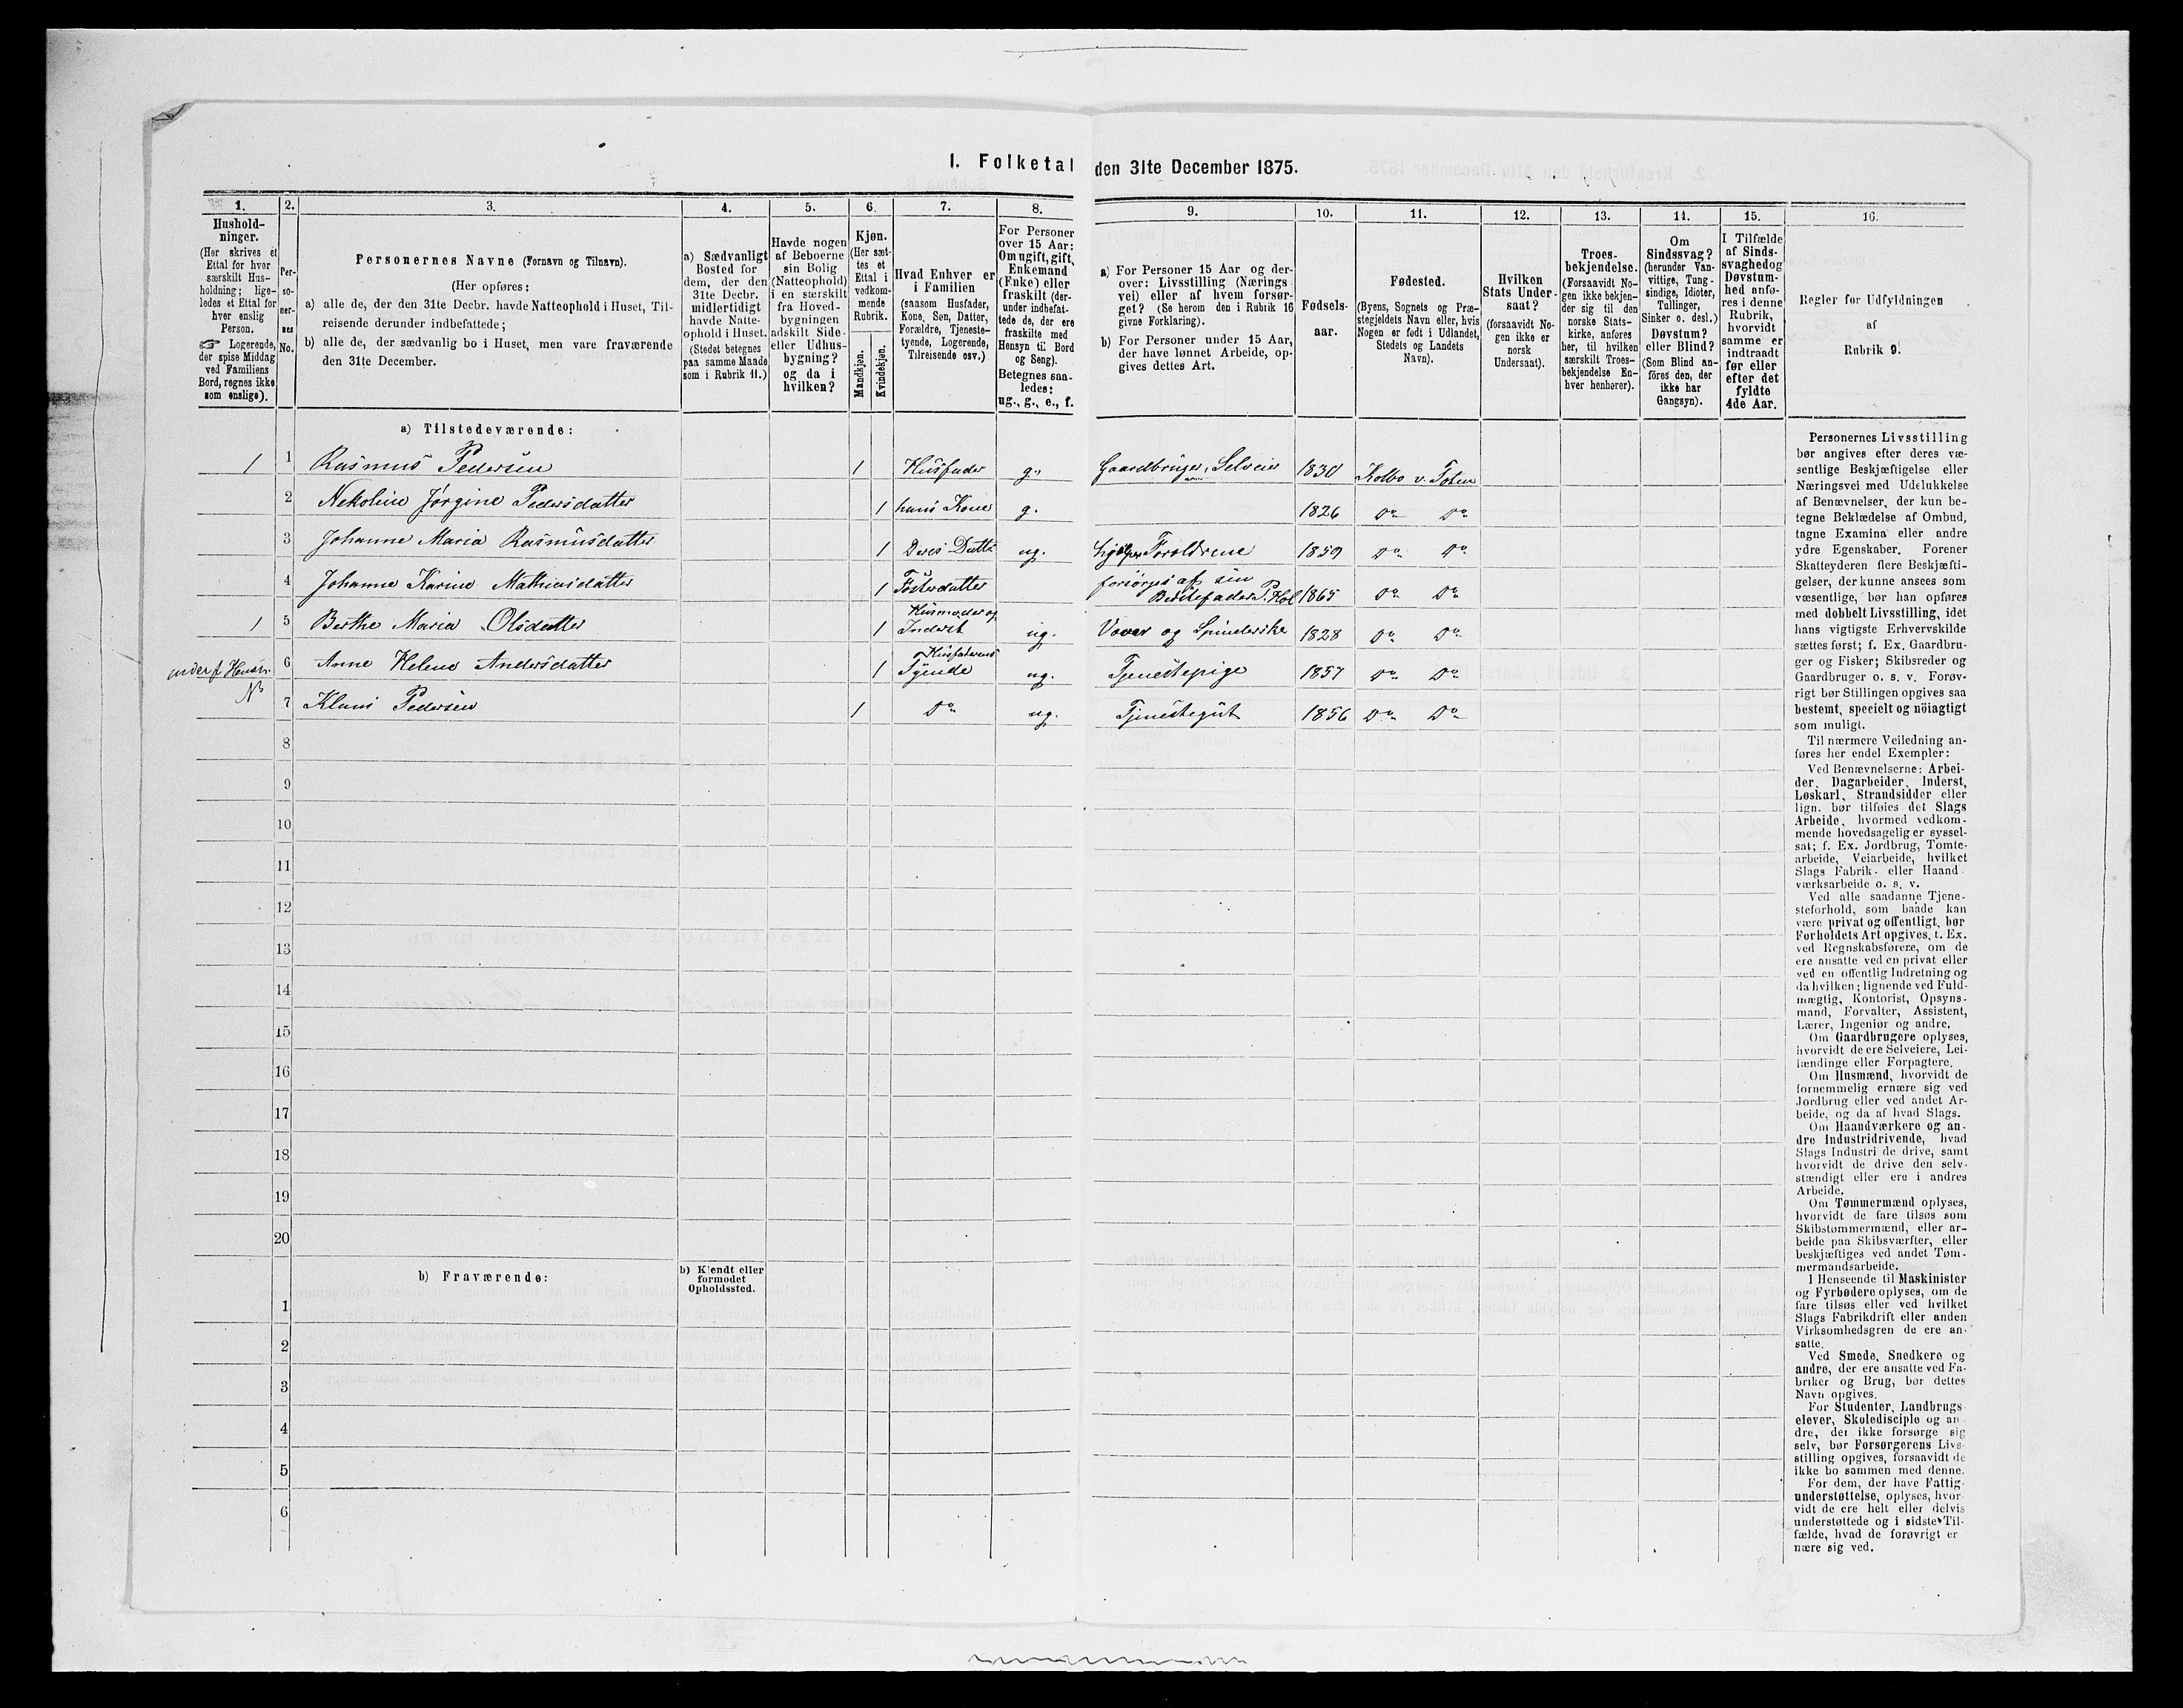 1. Folketal den 31te December 1875.
1.
Hushold-
ninger.
(Her skrives et
Ettal for hver
særskilt Hus-
holdning; lige-
ledes et Ettal for
hver enslig
Person.
☞ Logerende,
der spise Middag
ved Familiens
Bord, regnes ikke
som enslige).
2.
Per-
so-
ner-
nes
No.
3.
Personernes Navne (Fornavn og Tilnavn).
(Her opføres:
a) alle de, der den 31te Decbr. havde Natteophold i Huset, Til-
reisende derunder indbefattede;
b) alle de, der sædvanlig bo i Huset, men vare fraværende
den 31te December.
4.
a) Sædvanligt
Bosted for
dem, der den
31te Decbr.
midlertidigt
havde Natte-
ophold i Huset.
(Stedet betegnes
paa samme Maade
som i Rubrik 11.)
5.
Havde nogen
af Beboerne
sin Bolig
(Natteophold)
i en særskilt
fra Hoved-
bygningen
adskilt Side-
eller Udhus-
bygning?
og da i
hvilken?
6.
Kjøn.
(Her sæt-
tes et
Ettal i
vedkom-
mende
Rubrik.
Mandkjøn.
Kvindekjøn.
7.
Hvad Enhver er
i Familien
(saasom Husfader,
Kone, Søn, Datter,
Forældre, Tjeneste-
tyende, Logerende,
Tilreisende osv.)
8.
For Personer
over 15 Aar:
Om ugift, gift,
Enkemand
(Enke) eller
fraskilt (der-
under indbefat-
tede de, der ere
fraskilte med
Hensyn til Bord
og Seng).
Betegnes saa-
ledes:
ug., g., e., f.
9.
a) For Personer 15 Aar og der-
over: Livsstilling (Nærings
vei) eller af hvem forsør-
get? (Se herom den i Rubrik 16
givne Forklaring).
b) For Personer under 15 Aar,
der have lønnet Arbeide, op-
gives dettes Art.
10.
Fødsels-
aar.
11.
Fødested.
(Byens, Sognets og Præ-
stegjeldets Navn eller, hvis
Nogen er født i Udlandet,
Stedets og Landets
Navn).
12.
Hvilken
Stats Under-
saat?
(forsaavidt No-
gen ikke er
norsk
Undersaat).
13.
Troes-
bekjendelse.
(Forsaavidt No-
gen ikke bekjen-
der sig til den
norske Stats-
kirke, anføres
her, til hvilken
særskilt Troes-
bekjendelse En-
hver henhører).
14.
Om
Sindssvag?
(herunder Van-
vittige, Tung-
sindige, Idioter,
Tullinger,
Sinker o. desl.)
Døvstum?
eller Blind?
(Som Blind an-
føres den, der
ikke har
Gangsyn).
15.
I Tilfælde
af Sinds-
svaghed og
Døvstum-
hed anfø-
res i denne
Rubrik,
hvorvidt
samme er
indtraadt
før eller
efter det
fyldte
4de Aar.
16.
Regler for Udfyldningen
af
Rubrik 9.
a) Tilstedeværende:
1 1 Rasmus Pedersen 1 Husfader g. Gaardbruger, Selveier 1830 Kolbo v. Toten
2 Nekoline Jørgine Pedersdatter 1 hans Kone g. 1826 Do Do
3 Johanne Maria Rasmusdatter 1 Deres Datte ug. hjelper Foreldrene 1859 Do Do
4 Johanne Karine Mathiasdatter 1 Fosterdatter forsørges af sin
Bestefader P. Kol 1865 Do Do
1 5 Berthe Maria Olsdatter 1 Husmoder og
Inderst ug. Væver og Spinderske 1828 Do Do
6 Anne Helene Andersdatter 1 Husfaderens
Tyende ug. Tjenestepige 1857 Do Do
No
7 Klaus Pedersen 1 Do ug. Tjenestegut 1856 Do Do
8
9
10
11
12
13
14
15
16
17
18
19
20
b) Fraværende:
b) Kjendt eller
formodet
Opholdssted.
1
2
3
4
5
6
Personernes Livsstilling
bør angives efter deres væ-
sentlige Beskjæftigelse eller
Næringsvei med Udelukkelse
af Benævnelser, der kun be-
tegne Beklædelse af Ombud,
tagne Examina eller andre
ydre Egenskaber. Forener
Skatteyderen flere Beskjæfti-
gelser, der kunne ansees som
væsentlige, bør han opføres
med dobbelt Livsstilling, idet
hans vigtigste Erhvervskilde
sættes først; f. Ex. Gaardbru-
ger og Fisker; Skibsreder og
Gaardbruger o. s. v. Forøv-
rigt bør Stillingen opgives saa
bestemt, specielt og nöiagtigt
som muligt.
Til nærmere Veiledning an-
føres her endel Exempler:
Ved Benævnelserne: Arbei-
der, Dagarbeider, Inderst,
Løskarl, Strandsidder eller
lign. bør tilføies det Slags
Arbeide, hvormed vedkom-
mende hovedsagelig er syssel-
sat; f. Ex. Jordbrug, Tomte-
arbeide, Veiarbeide, hvilket
Slags Fabrik- eller Haand-
værksarbeide o. s. v.
Ved alle saadanne Tjene-
steforhold, som baade kan
være privat og offentligt, bør
Forholdets Art opgives, t. Ex.
ved Regnskabsførere, om de
ere ansatte ved en privat eller
ved en offentlig Indretning og
da hvilken; lignende ved Fuld-
mægtig, Kontorist, Opsyns-
mand, Forvalter, Assistent,
Lærer, Ingeniør og andre.
Om Gaardbrugere oplyses,
hvorvidt de ere Selveiere, Lei-
lændinge eller Forpagtere.
Om Husmænd, hvorvidt de
fornemmelig ernære sig ved
Jordbrug eller ved andet Ar-
beide, og da af hvad Slags.
Om Haandværkere og an-
dre Industridrivende, hvad
Slags Industri de drive, samt
hvorvidt de drive den selv-
stændigt eller ere i andres
Arbeide.
Om Tømmermænd oplyses,
hvorvidt de fare tilsøs som
Skibstømmermænd, eller ar-
beide paa Skibsværfter, eller
beskjæftiges ved andet Tøm-
mermandsarbeide.
I Henseende til Maskinister
og Fyrbødere oplyses, om de
fare tilsøs eller ved hvilket
Slags Fabrikdrift eller anden
Virksomhedsgren de ere an-
satte.
Ved Smede, Snedkere og
andre, der ere ansatte ved Fa-
briker og Brug, bør dettes
Navn opgives.
For Studenter, Landbrugs-
elever, Skoledisciple og an-
dre, der ikke forsørge sig
selv, bør Forsørgerens Livs-
stilling opgives, forsaavidt de
ikke bo sammen med denne.
For dem, der have Fattig-
understøttelse, oplyses, hvor-
vidt de ere helt eller delvis
understøttede og i sidste Til-
fælde, hvad de forøvrigt er-
nære sig ved.